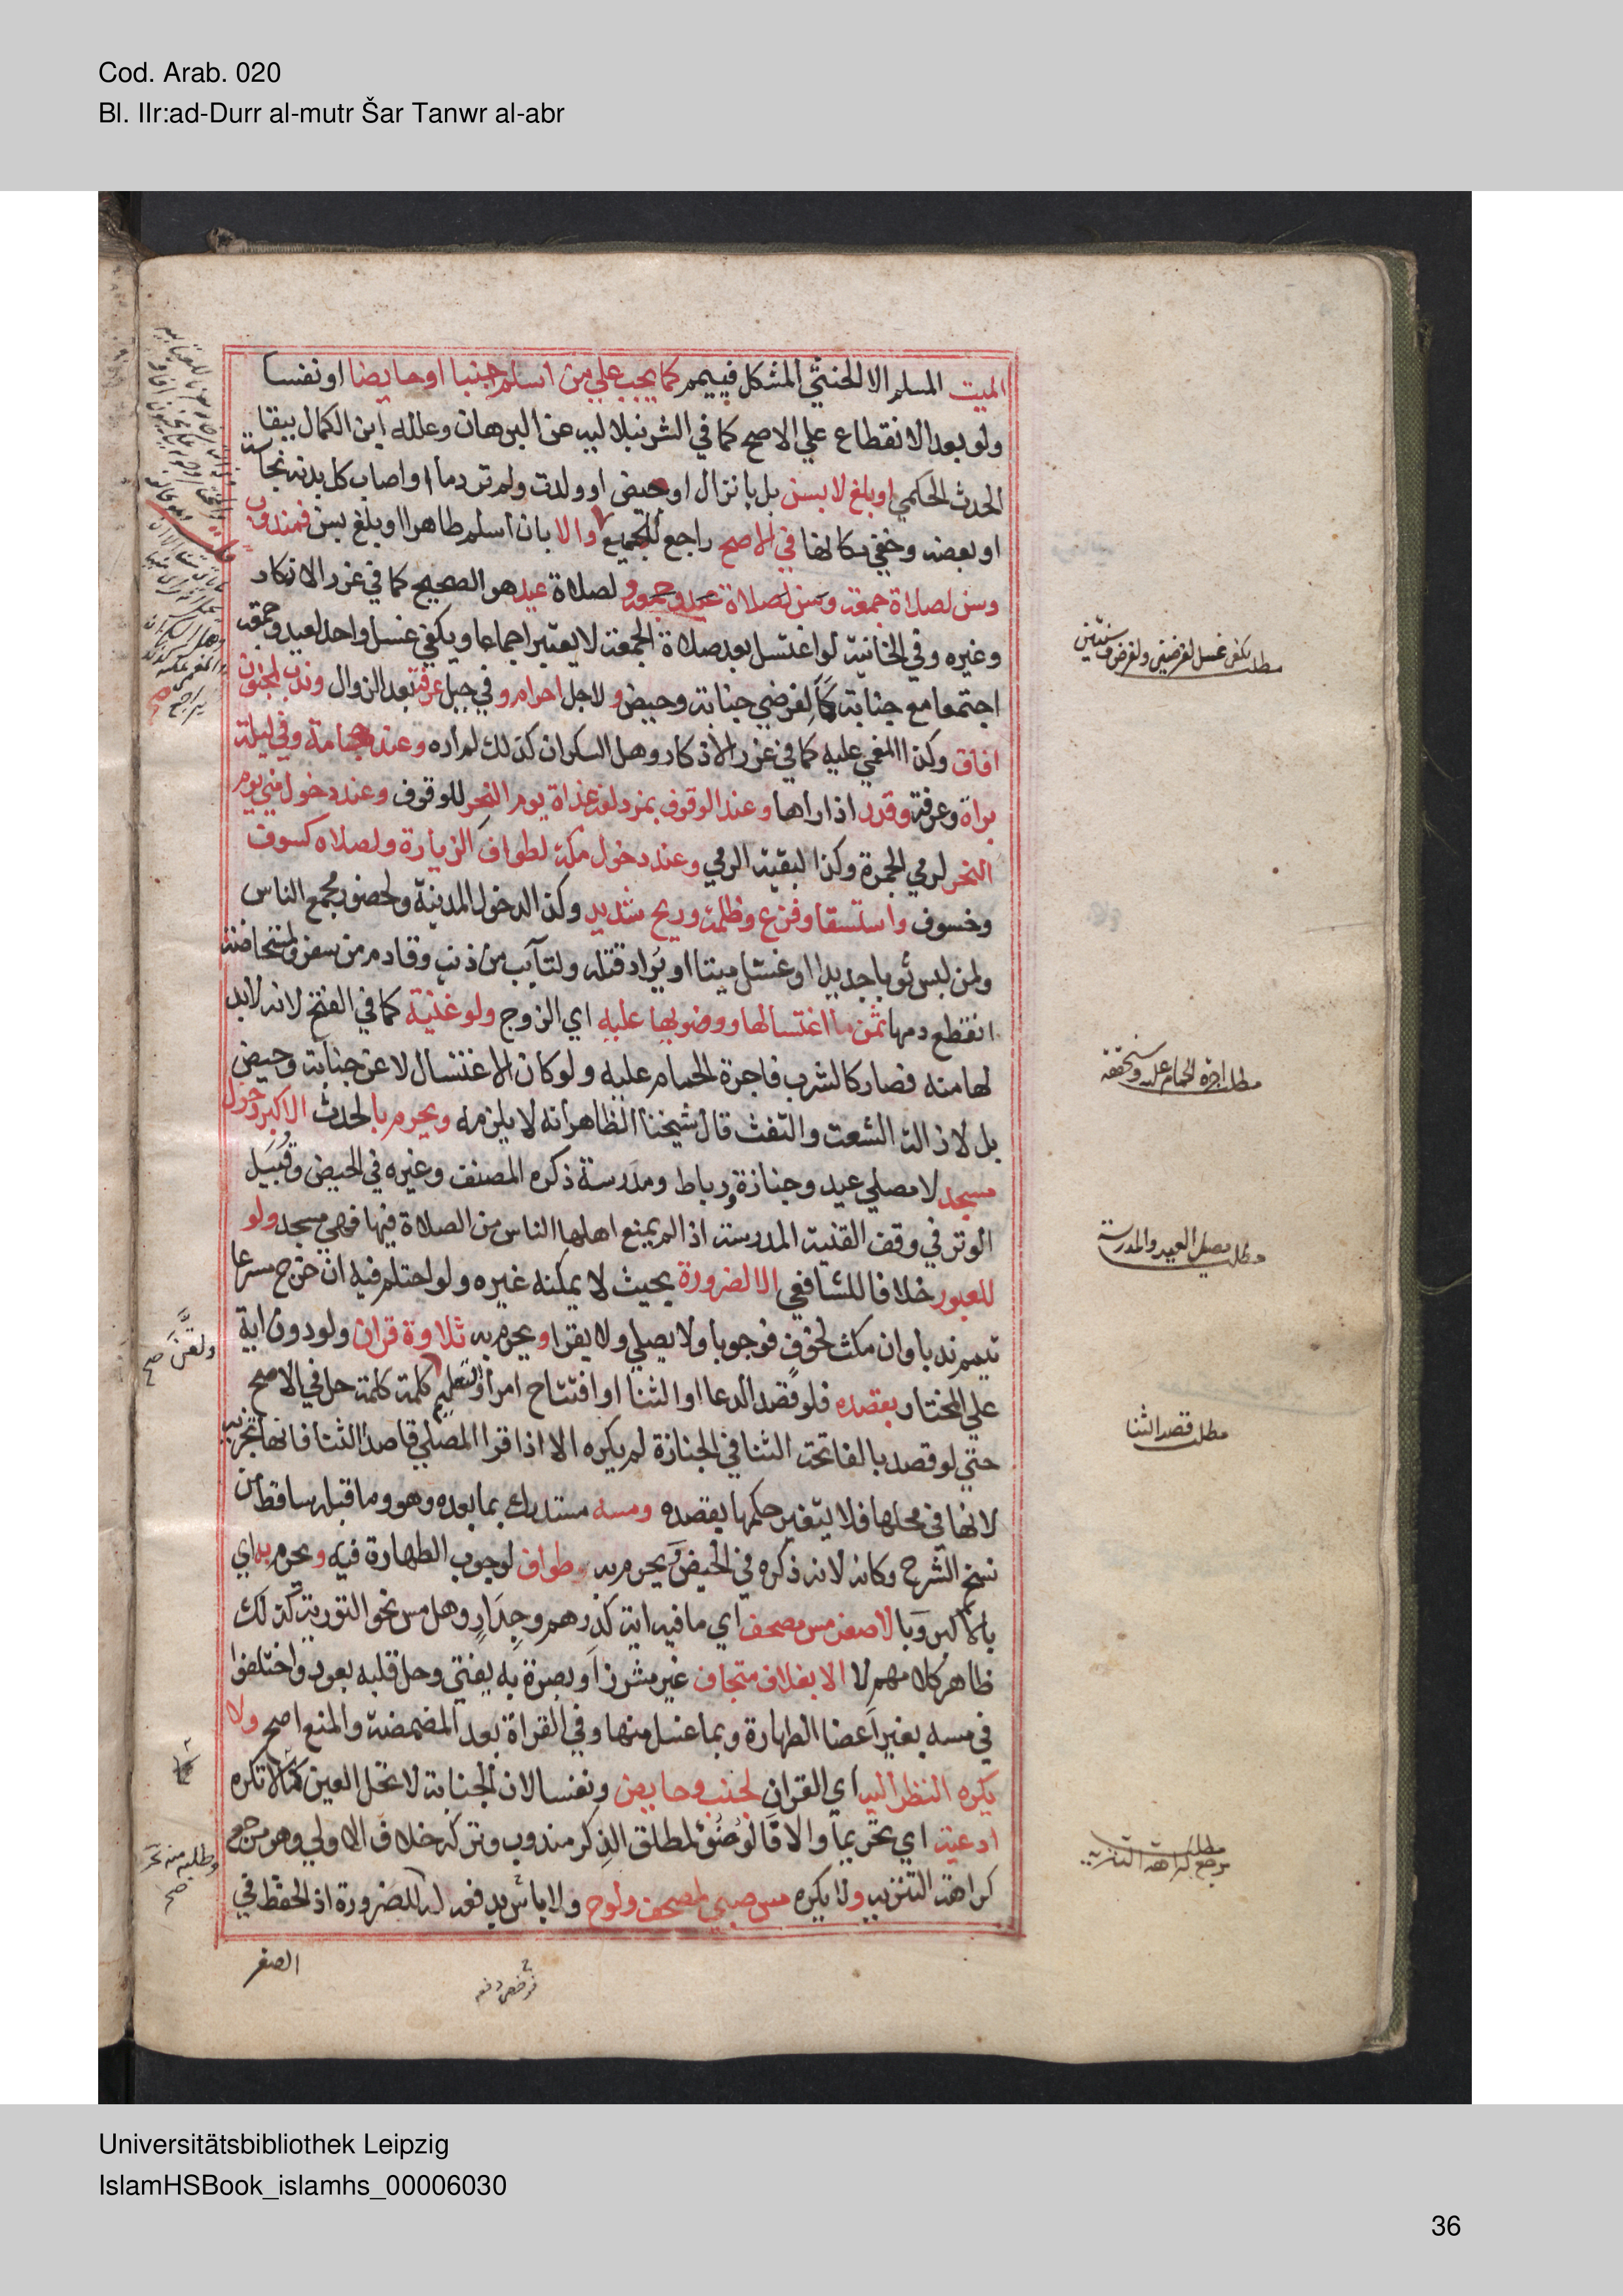 Cod. Arab. 020
Bl. IIr:ad-Durr al-mutr Šar Tanwr al-abr
الميت المسلم الا الخنثي المشكل فييمم كما يجب علي من اسلم جنبا او حايضا او نفسا
ولو بعد الانقطاع علي الاصح كما في الشرنبلاليه عن البرهان وعلله ابن الكمال ببقا
الحدث الحكمي او بلغ لا بسن بل بانزال او حيض او ولدت ولم تر دما او اصاب كل بدنه نجاسة
او بعضه وخفي مكانها في الاصح راجع للجميع والا بان اسلم طاهرا او بلغ بسن فمندوب
وسن لصلاة جمعة وسن لصلاة عيد هو الصحيح كما في غرر الاذكار
وغيره وفي الخانية لو اغتسل بعد صلاة الجمعة لا يعتبر اجماعا ويكفي غسل واحد لعيد وجمعة
اجتمعا مع جنابة كما لفرضي جنابة وحيض ولاجل احرام وفي جبل عرفة بعد الزوال وندب لمجنون
افاق وكذا المغمي عليه كما في غرر الاذكار وهل السكران كذلك لم اره وعند حجامة وفي ليلة
براة وعرفة وقدر اذا راها وعند الوقوف بمزدلفة غداة يوم النحر للوقوف وعند دخول مني يوم
النحر لرمي الجمرة وكذا لبقية الرمي وعند دخول مكة لطواف الزيارة ولصلاه كسوف
وخسوف واستسقا وفزع وظلمة وريح شديد وكذا الدخول المدينة ولحضور مجمع الناس
ولمن لبس ثوبا جديدا او غسل ميتا او يراد قتله ولتآيب من ذنب وقادم من سفر ولمستحاضة
انقطع دمها ثمن ما اغتسالها ووضوئها عليه اي الزوج ولو غنية كما في الفتح لانه لابد
لها منه فصار كالشرب فاجرة الحمام عليه ولو كان الاغتسال لا عن جنابة وحيض
بل لازالة الشعث والتفث قال شيخنا الظاهر انه لا يلزمه ويحرم بالحدث الاكبر دخول
مسجد لا مصلي عيد وجنازة ورباط ومدرسة ذكره المصنف وغيره في الحيض وقبيل
الوتر في وقف القنية المدرسة اذا لم يمنع اهلها الناس من الصلاة فيها فهي مسجد ولو
للعبور خلافا للشافعي الا لضرورة بحيث لا يمكنه غيره ولو احتلم فيه ان خرج مسرعا
تيمم ندبا وان مكث لخوف فوجوبا ولا يصلي ولا يقرا ويحرم به تلاوة قران ولو دون اية
علي المختار بقصده فلو قصد الدعا او الثنا او افتتاح امر او التعليم كلمة كلمة حل في الاصح
حتي لو قصد بالفاتحة الثنا في الجنازة لم يكره الا اذا قرا المصلي قاصدا الثنا فانها تجزيه
لانها في محلها فلا يتغير حكمها بقصده ومسه مستدرك بما بعده وهو وما قبله ساقط من
نسخ الشرح وكانه لانه ذكره في الحيض ويحرم به طواف لوجوب الطهارة فيه ويحرم به اي
بالاكبر وبالاصغر مس مصحف اي ما فيه اية كدرهم وجدار وهل مس نحو التورية كذلك
ظاهر كلامهم لا الا بغلاف متجاف غير مشرز او بصرة به يفتي وحل قلبه بعود واختلفوا
في مسه بغير اعضا الطهارة وبما غسل منها وفي القراة بعد المضمضة والمنع اصح ولا
يكره النظر اليه اي القران لجنب وحايض ونفسا لان الجنابة لا تحل العين كما لا تكره
ادعية اي تحريما والا فالوضؤ لمطلق الذكر مندوب وتركه خلاف الاولي وهو مرجع
كراهة التنزيه ولا يكره مس صبي لمصحف ولوح ولا باس بدفعه له للضرورة اذ الحفظ في
الصغر
مطلب يكفي غسل لفرضين ولفرض وسنتين
مطلب اجرة الحمام عليه
مطلب مصلي العيد والمدرسة
مطلب قصد الثنا
مطلب مرجع كراهة التنزيه
ولقن صح
Universitätsbibliothek Leipzig
IslamHSBook_islamhs_00006030
36